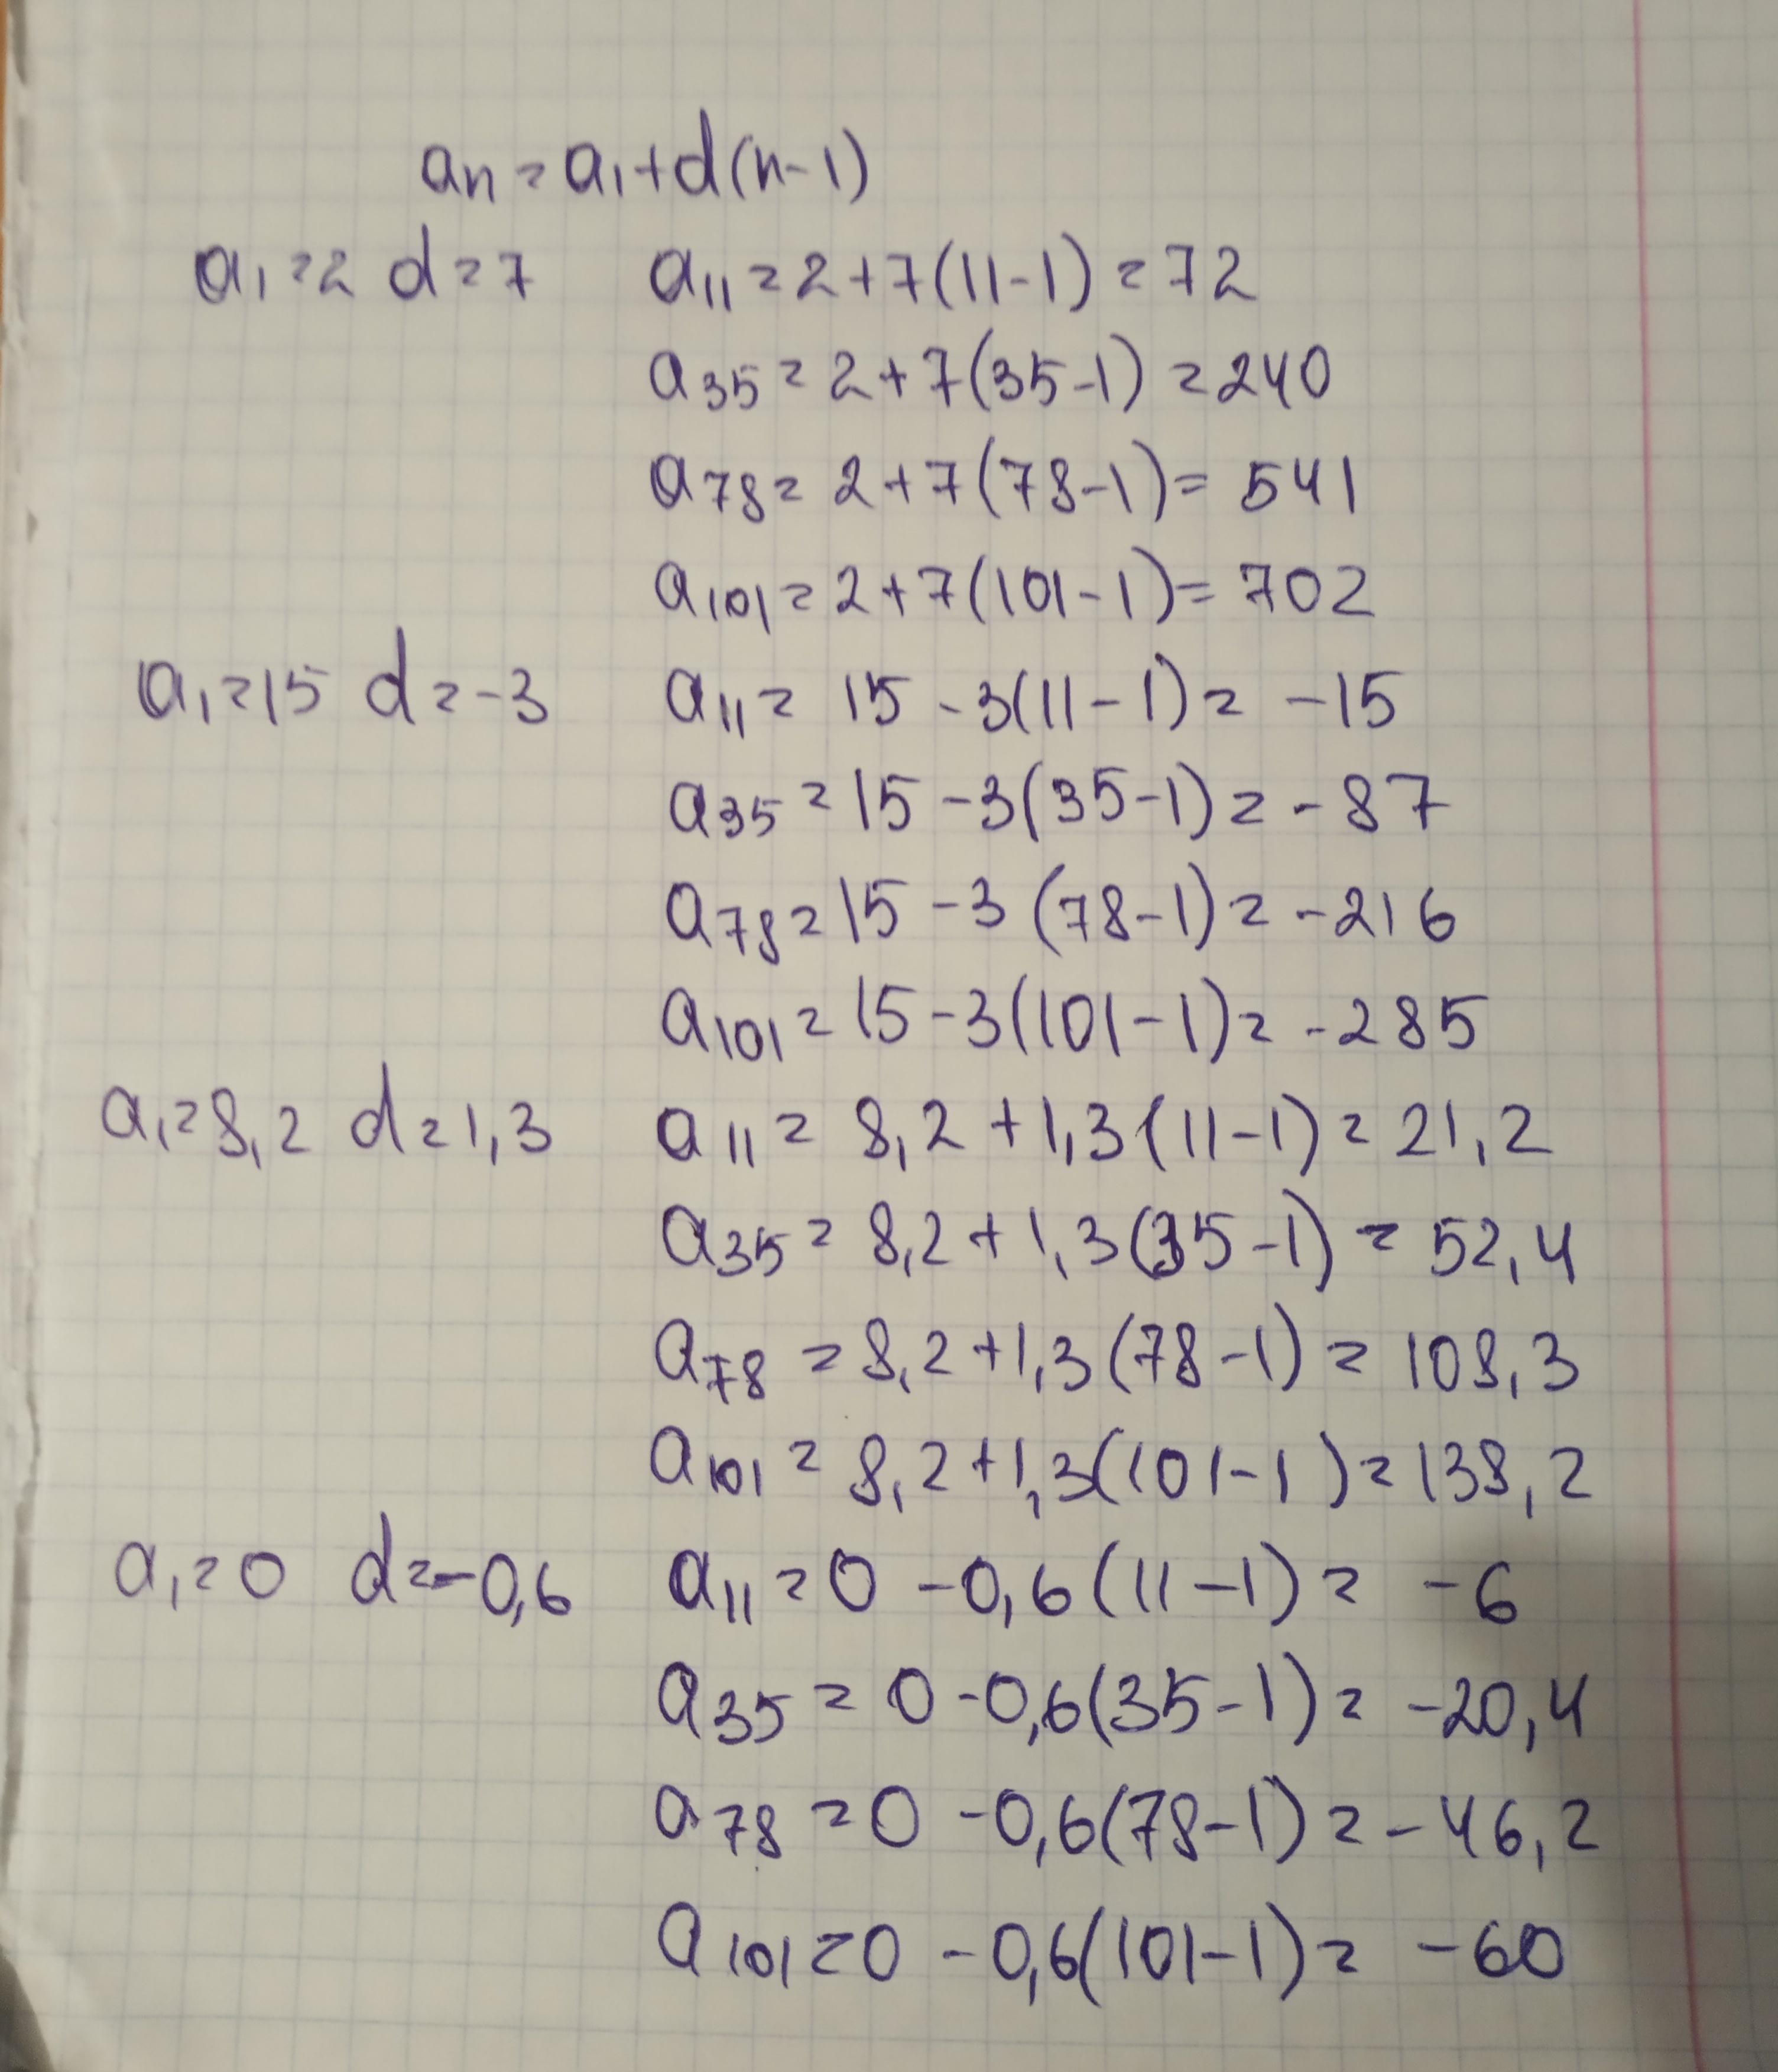 an = a1 + d(n-1)
a1 = 2 d = 7 a11 = 2 + 7(11-1) = 72
a35 = 2 + 7(35-1) = 240
a78 = 2 + 7(78-1) = 541
a101 = 2 + 7(101-1) = 702
a1 = 15 d = -3 a11 = 15 - 3(11-1) = -15
a35 = 15 - 3(35-1) = -87
a78 = 15 - 3(78-1) = -216
a101 = 15 - 3(101-1) = -285
a1 = 8,2 d = 1,3 a11 = 8,2 + 1,3(11-1) = 21,2
a35 = 8,2 + 1,3(35-1) = 52,4
a78 = 8,2 + 1,3(78-1) = 108,3
a101 = 8,2 + 1,3(101-1) = 138,2
a1 = 0 d = -0,6 a11 = 0 - 0,6(11-1) = -6
a35 = 0 - 0,6(35-1) = -20,4
a78 = 0 - 0,6(78-1) = -46,2
a101 = 0 - 0,6(101-1) = -60